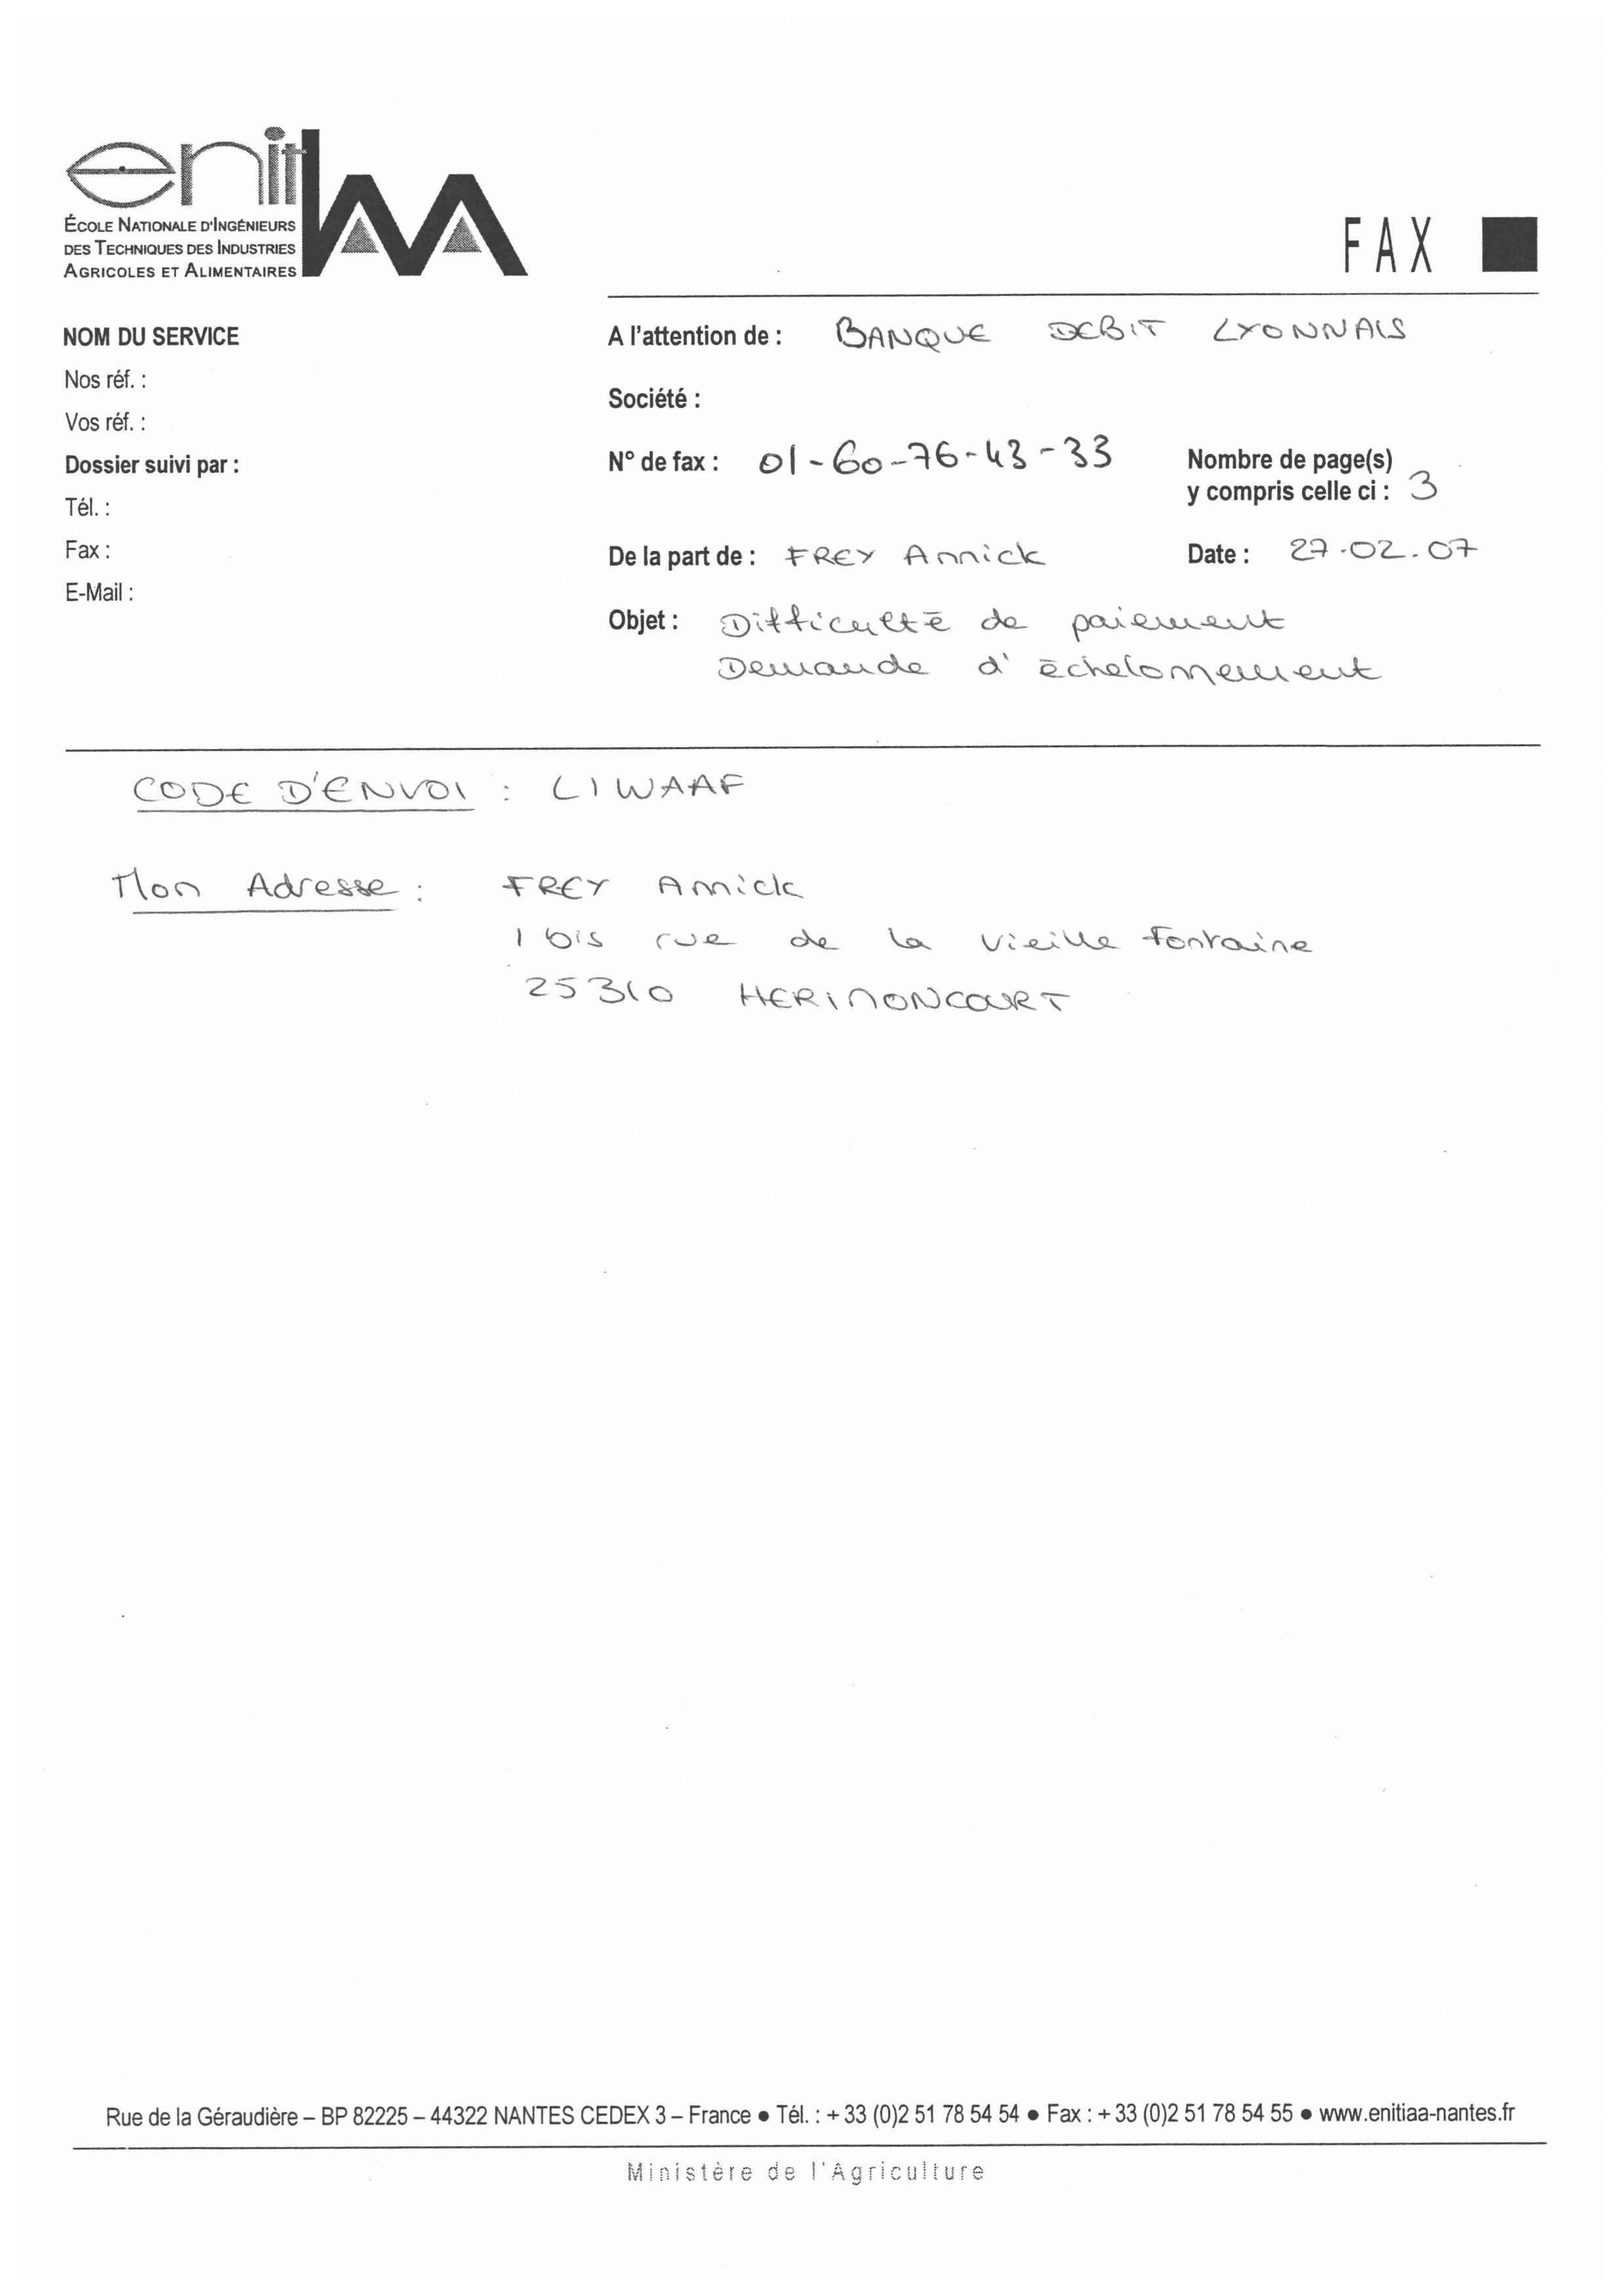 enitIAA
ÉCOLE NATIONALE D'INGÉNIEURS
DES TECHNIQUES DES INDUSTRIES
AGRICOLES ET ALIMENTAIRES
FAX
NOM DU SERVICE
Nos réf. :
Vos réf. :
Dossier suivi par :
Tél. :
Fax :
E-Mail :
A l'attention de : BANQUE DEBIT LYONNAIS
Société :
N° de fax : 01-60-76-43-33
Nombre de page(s)
y compris celle ci : 3
De la part de : FREY Annick
Date : 27.02.07
Objet : Difficulté de paiement
Demande d'échelonnement
CODE D'ENVOI : LIWAAF
Mon Adresse : FREY Annick
1 bis rue de la vieille Fontaine
25310 HERIMONCOURT
Rue de la Géraudière – BP 82225 – 44322 NANTES CEDEX 3 – France ● Tél. : + 33 (0)2 51 78 54 54 ● Fax : + 33 (0)2 51 78 54 55 ● www.enitiaa-nantes.fr
Ministère de l'Agriculture